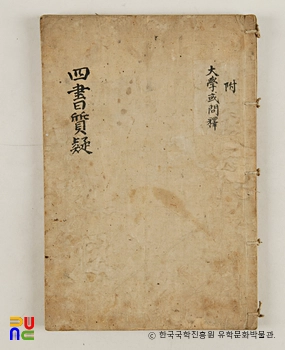 附
大學或問釋
四書質疑
ⓒ 한국국학진흥원 유학문화박물관.